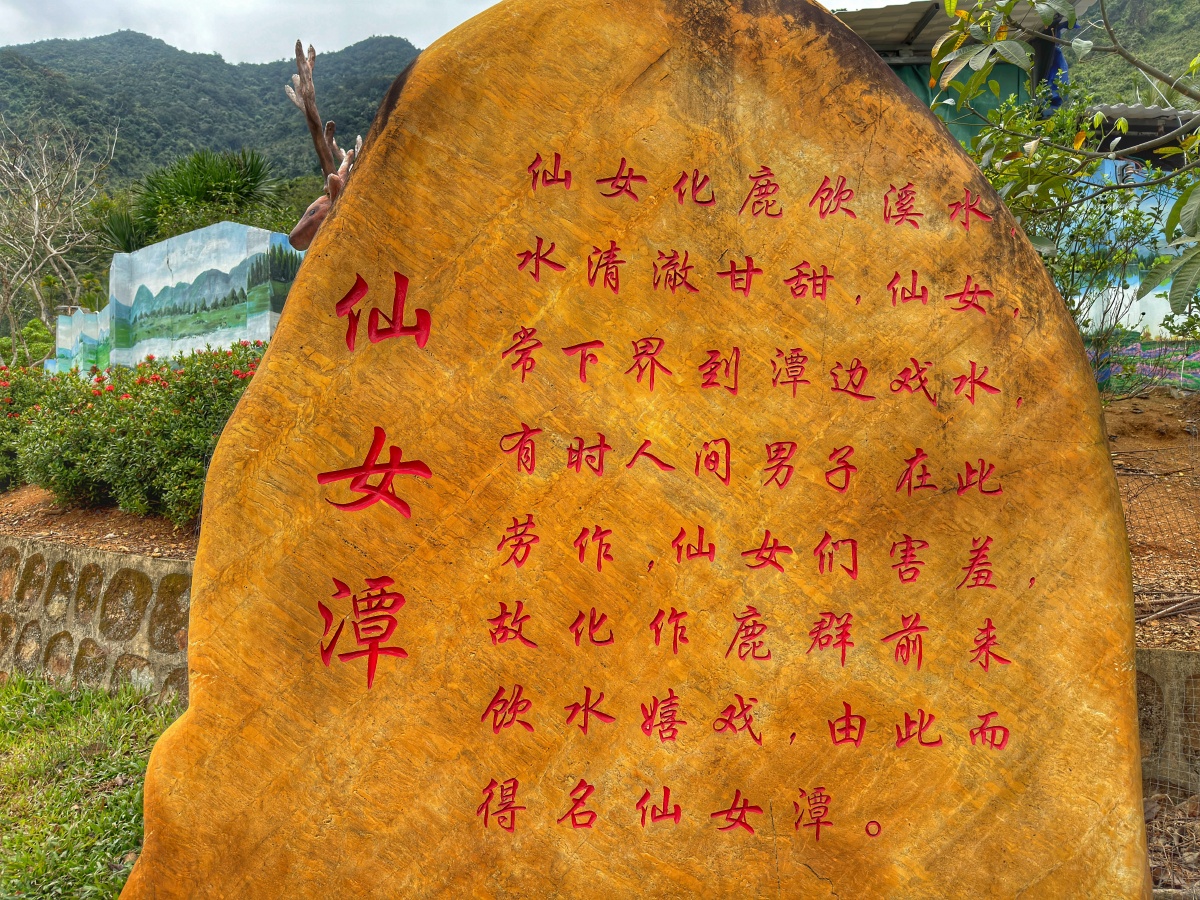 仙女潭
仙女化鹿饮溪水,
水清澈甘甜,仙女,
常下界到潭边戏水,
有时人间男子在此
劳作,仙女们害羞,
故化作鹿群前来
饮水嬉戏,由此而
得名仙女潭。